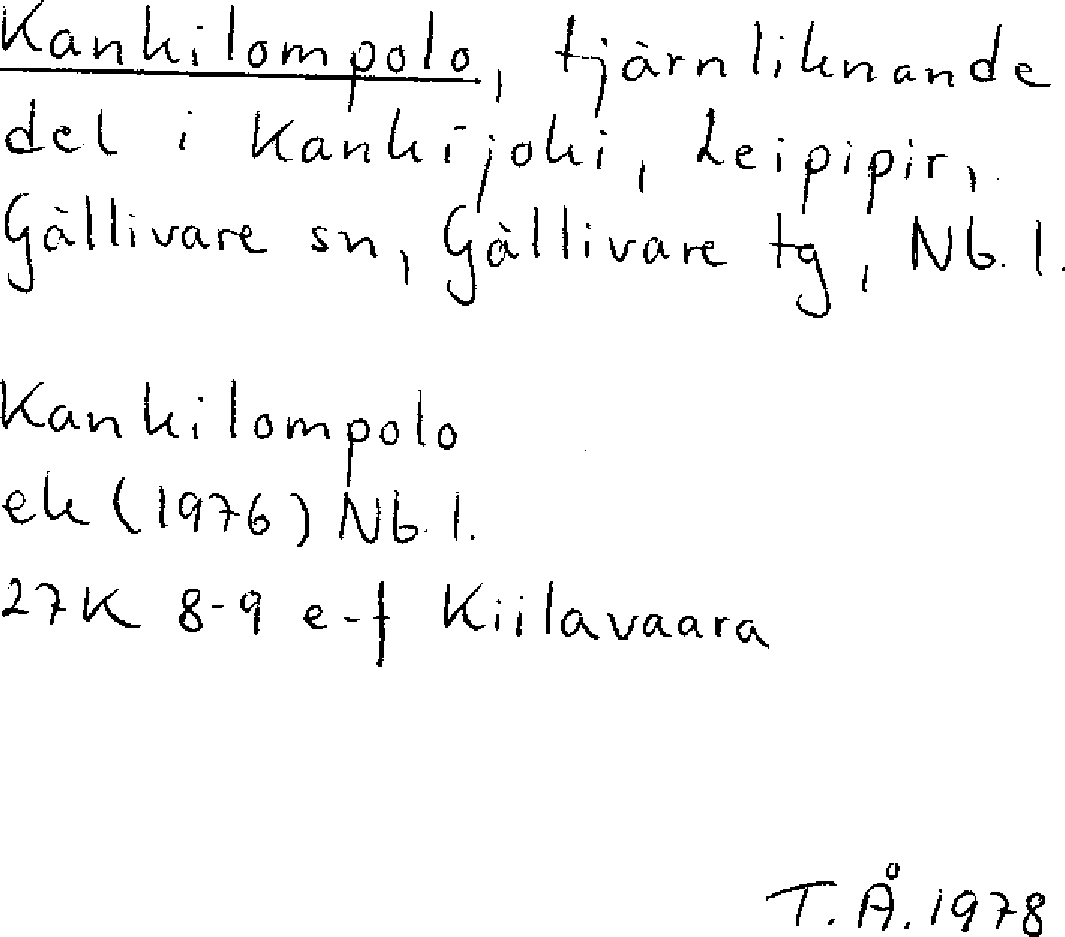 Kankilompolo, tjärnliknande
del i Kankijoki, Leipipir,
Gällivare sn, Gällivare tg, Nb. l.
Kankilompolo
ek (1976) Nb. l.
27K 8-9 e-f Kiilavaara
T. Å. 1978